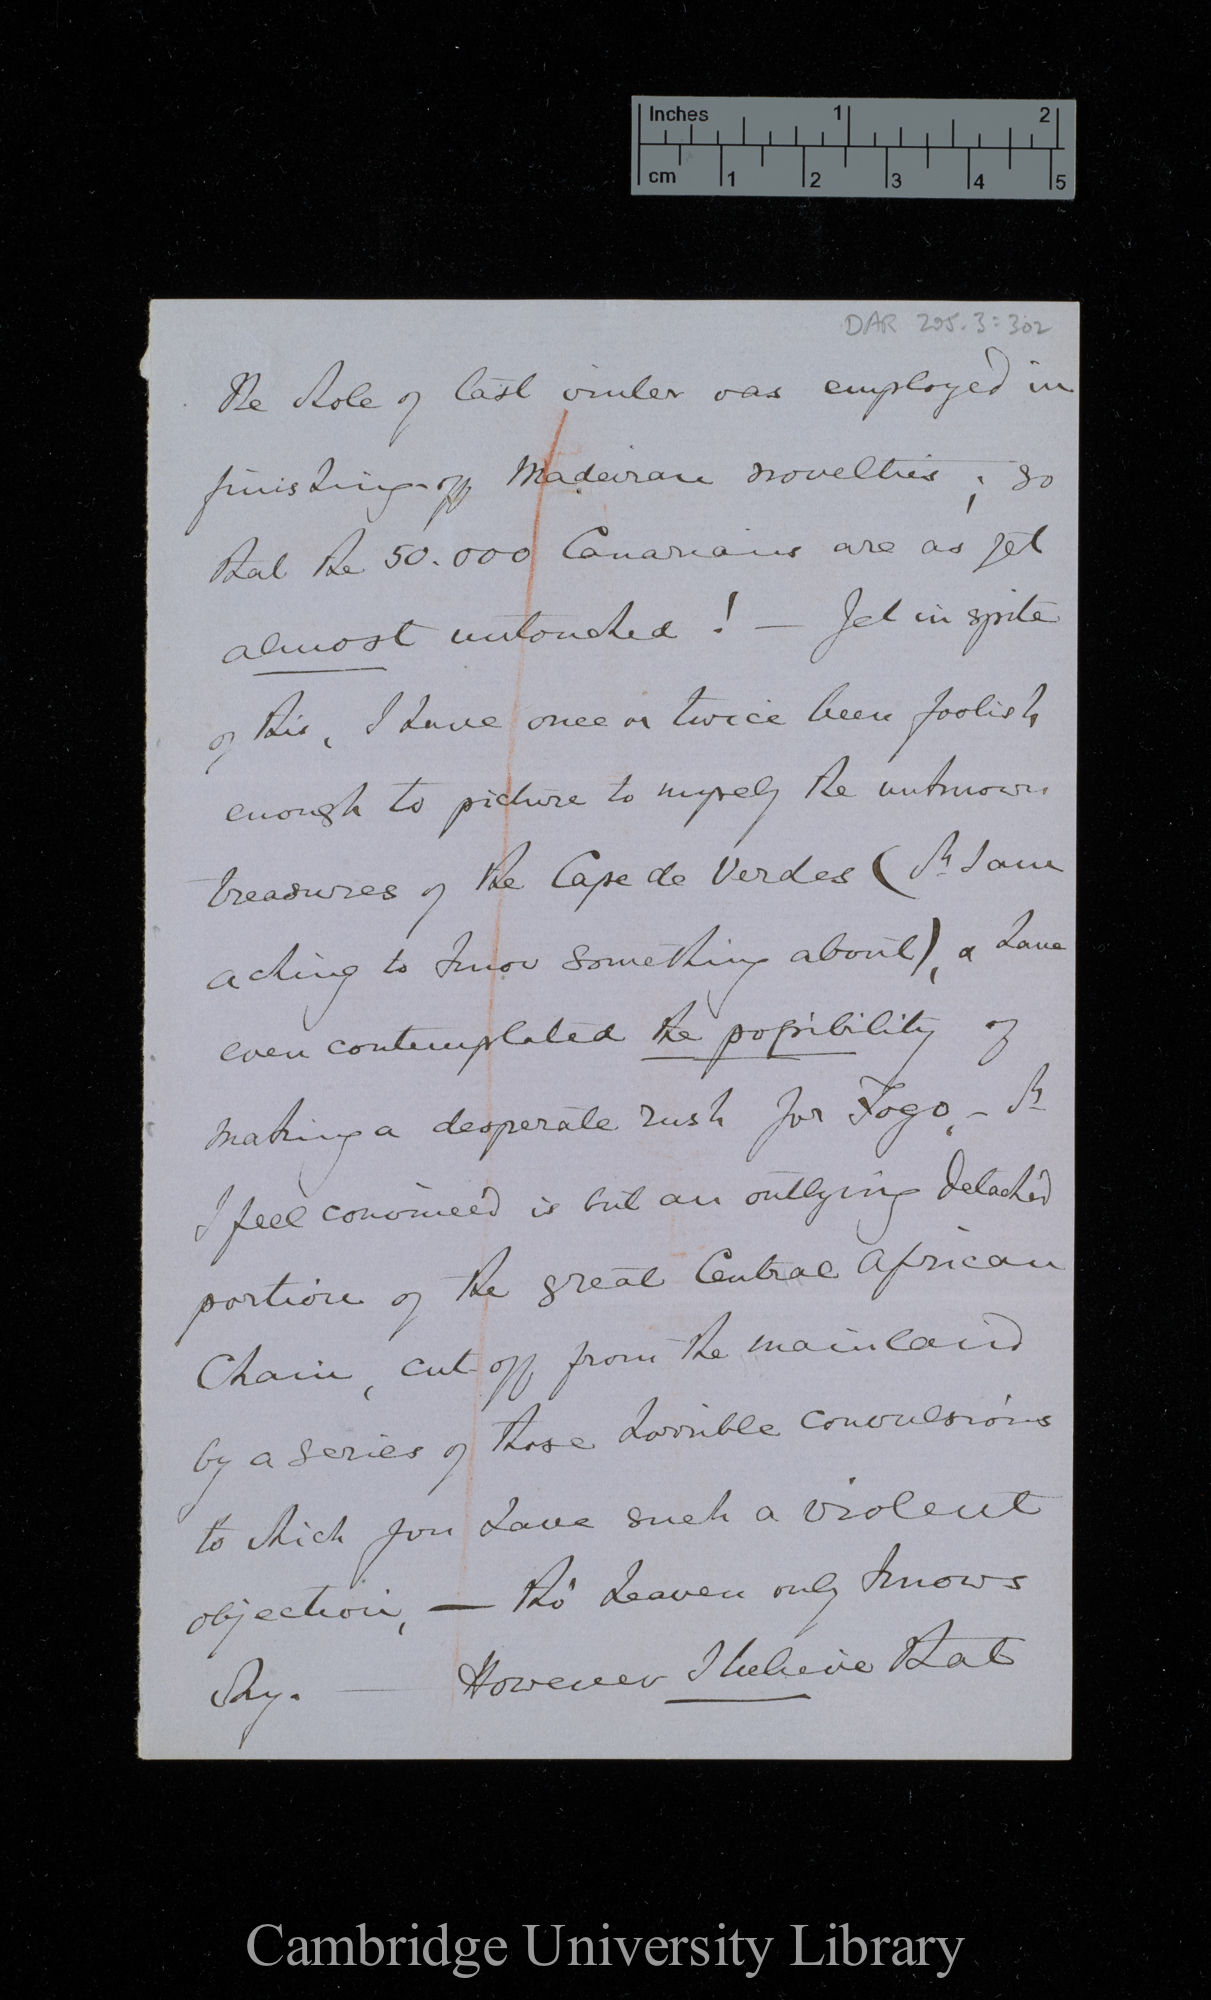 Inches 1 2
cm 1 2 3 4 5
DAR 205.3:302
the whole of last winter was employed in
finishing-off Madeiran novelties; so
that the 50.000 Canarians are as yet
almost untouched! — Yet in spite
of this, I have once or twice been foolish
enough to picture to myself the unknown
treasures of the Cape de Verdes (wh. I am
aching to know something about), & have
even contemplated the possibility of
making a desperate rush for Fogo, — wh.
I feel convinced is but an outlying detached
portion of the great Central African
Chain, cut-off from the mainland
by a series of those horrible convulsions
to which you have such a violent
objection, — tho' heaven only knows
why. — However I believe that
Cambridge University Library